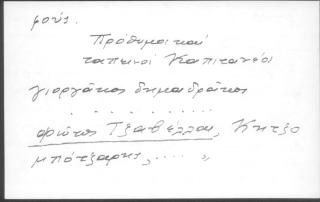 μούς.
Πρόθυμοι καί
ταπεινοί Καπιτανέοι
γιοργάκης δημαδράκης
. . . . . . . . . .
φώτος Τζαβέλλας, Κήτζο
μπότζαρης, ..... »